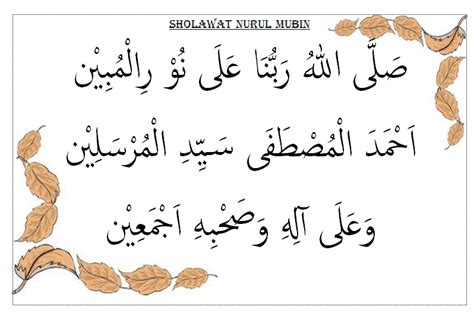 SHOLAWAT NURUL MUBIN
صَلَّى اللهُ رَبُّنَا عَلَى نُوْ رِالْمُبِيْن
اَحْمَدَ الْمُصْطَفَى سَيِّدِ الْمُرْسَلِيْن
وَعَلَى آلِهِ وَصَحْبِهِ اَجْمَعِيْن